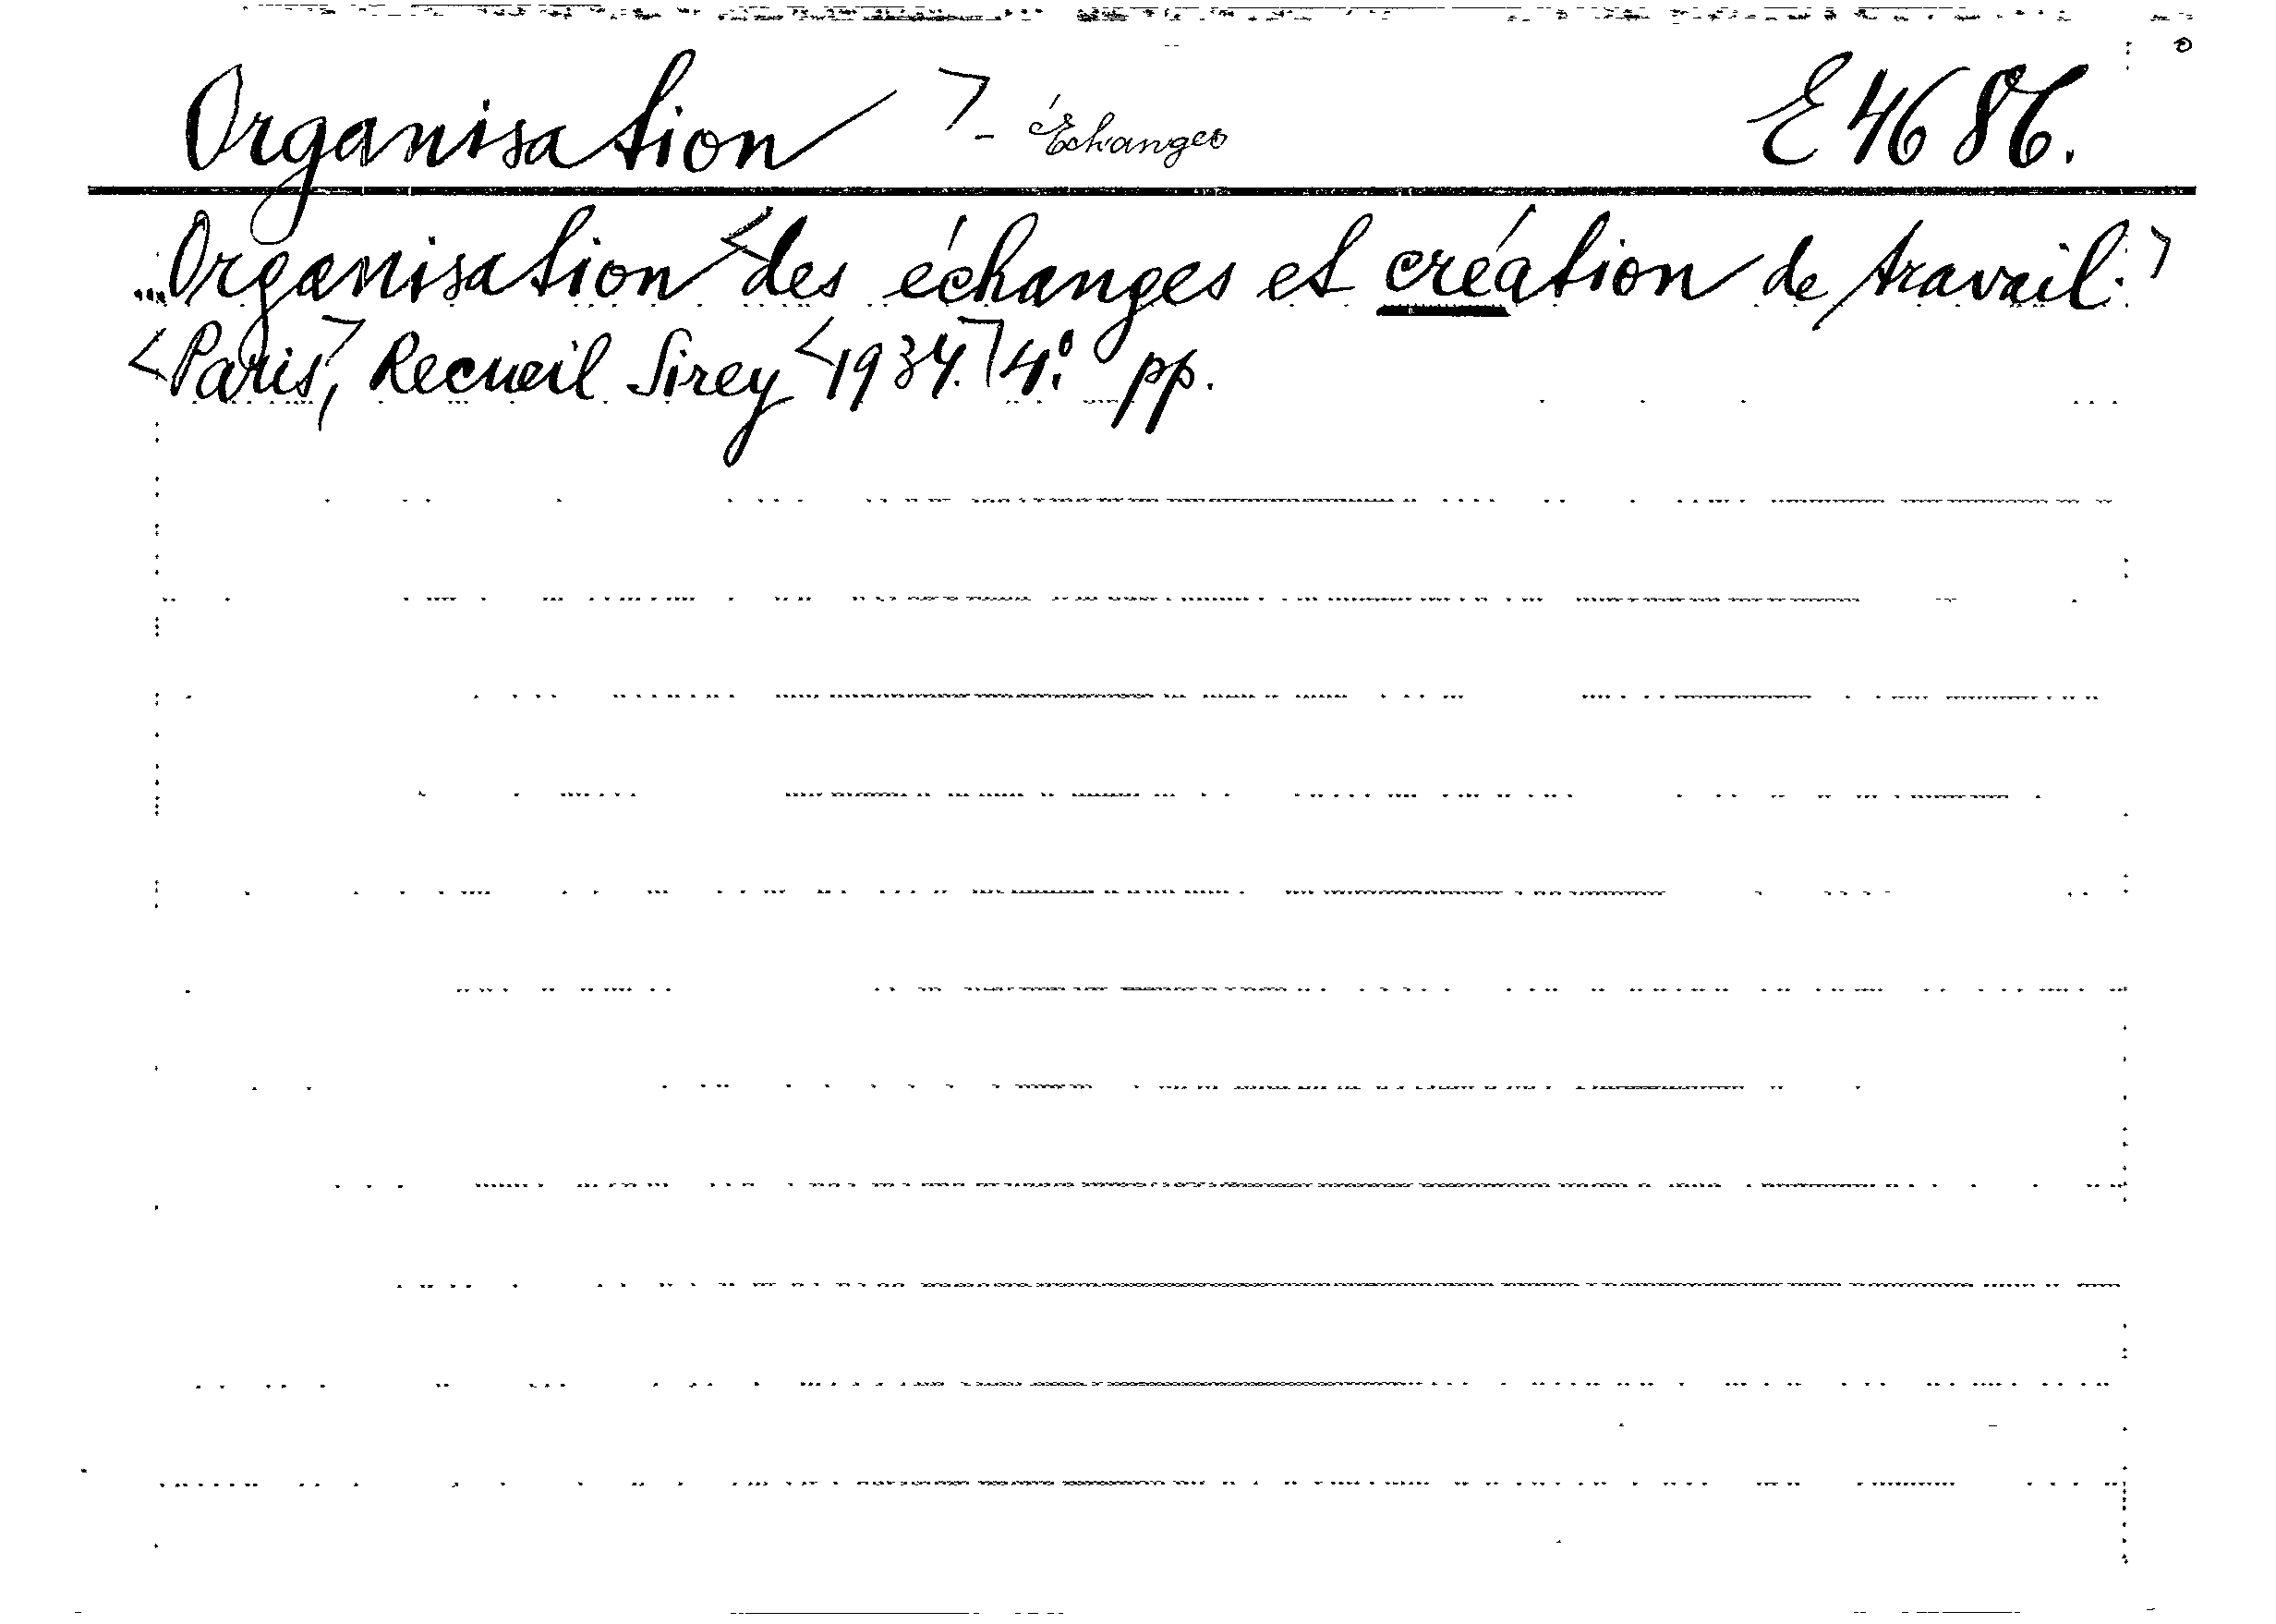 Organisation > - Échanges E 4686.
Organisation < des échanges et création de travail. >
< Paris, > Recueil Sirey < 1934. > 4.° pp.